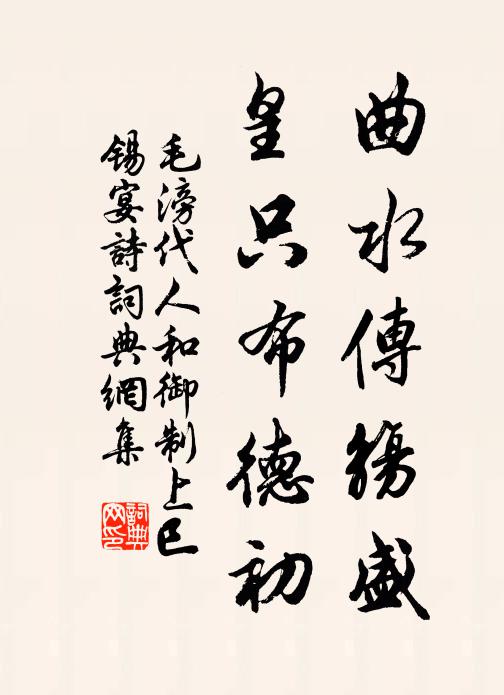 曲水傳觴盛
皇只布德初
毛滂代人和御制上巳
錫宴詩詞典網集
詞典
网印